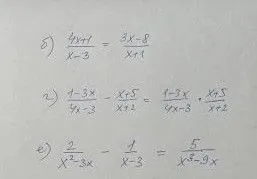 б) (4x+1)/(x-3) = (3x-8)/(x+1)
г) (1-3x)/(4x-3) - (x+5)/(x+2) = (1-3x)/(4x-3) · (x+5)/(x+2)
е) 2/(x²-3x) - 1/(x-3) = 5/(x³-9x)